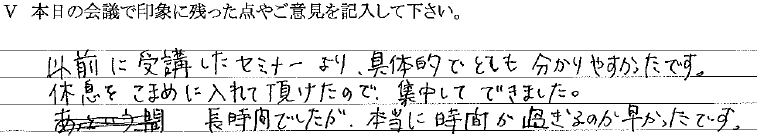 V 本日の会議で印象に残った点やご意見を記入して下さい。
以前に受講したセミナーより、具体的でとても分かりやすかったです。
休息をこまめに入れて頂けたので、集中してできました。
長時間でしたが、本当に時間が過ぎるのが早かったです。